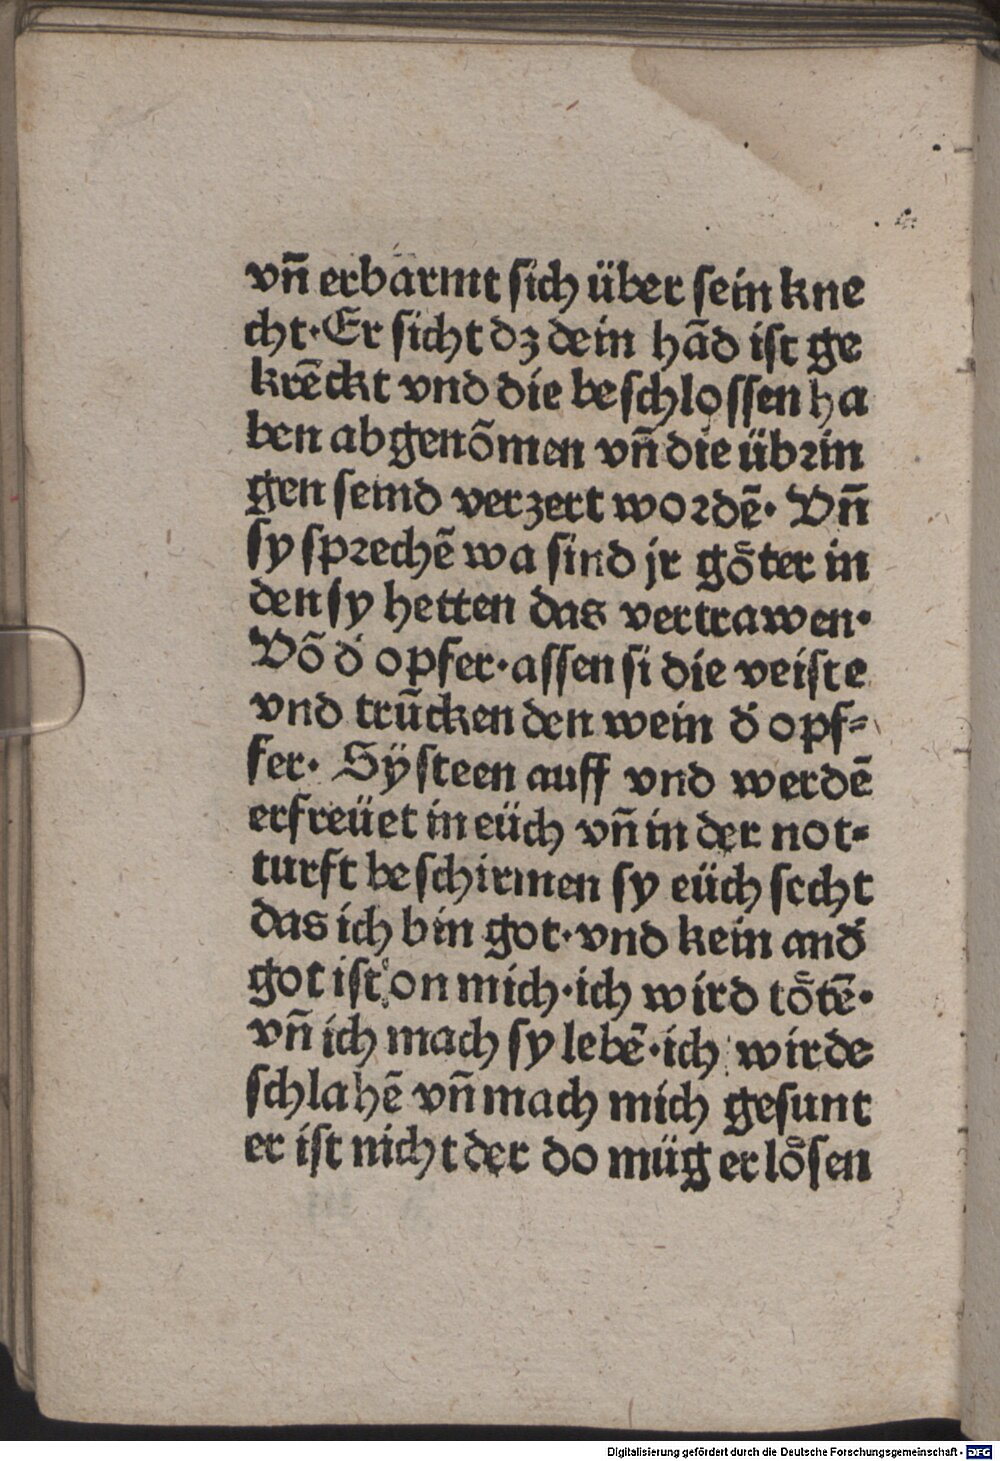 vn̄ erbarmt sich über sein kne
cht·Er sicht dz dein hād ist ge
krēckt vnd die beschlossen ha
ben abgenōmen vn̄ die übrin
gen seind verzert wordē· Vn̄
sy sprechē wa sind jr gȫter in
den sy hetten das vertrawen·
Vō d̓ opfer·assen si die veiste
vnd trūcken den wein d̓ opf⸗
fer· Sÿ steen auff vnd werdē
erfreüet in eüch vn̄ in der not⸗
turft beschirmen sy eüch secht
das ich bin got·vnd kein and̓
got ist on mich·ich wird tȫtē·
vn̄ ich mach sy lebē·ich wirde
schlahē vn̄ mach mich gesunt
er ist nicht der do müg erlösen
Digitalisierung gefördert durch die Deutsche Forschungsgemeinschaft - DFG